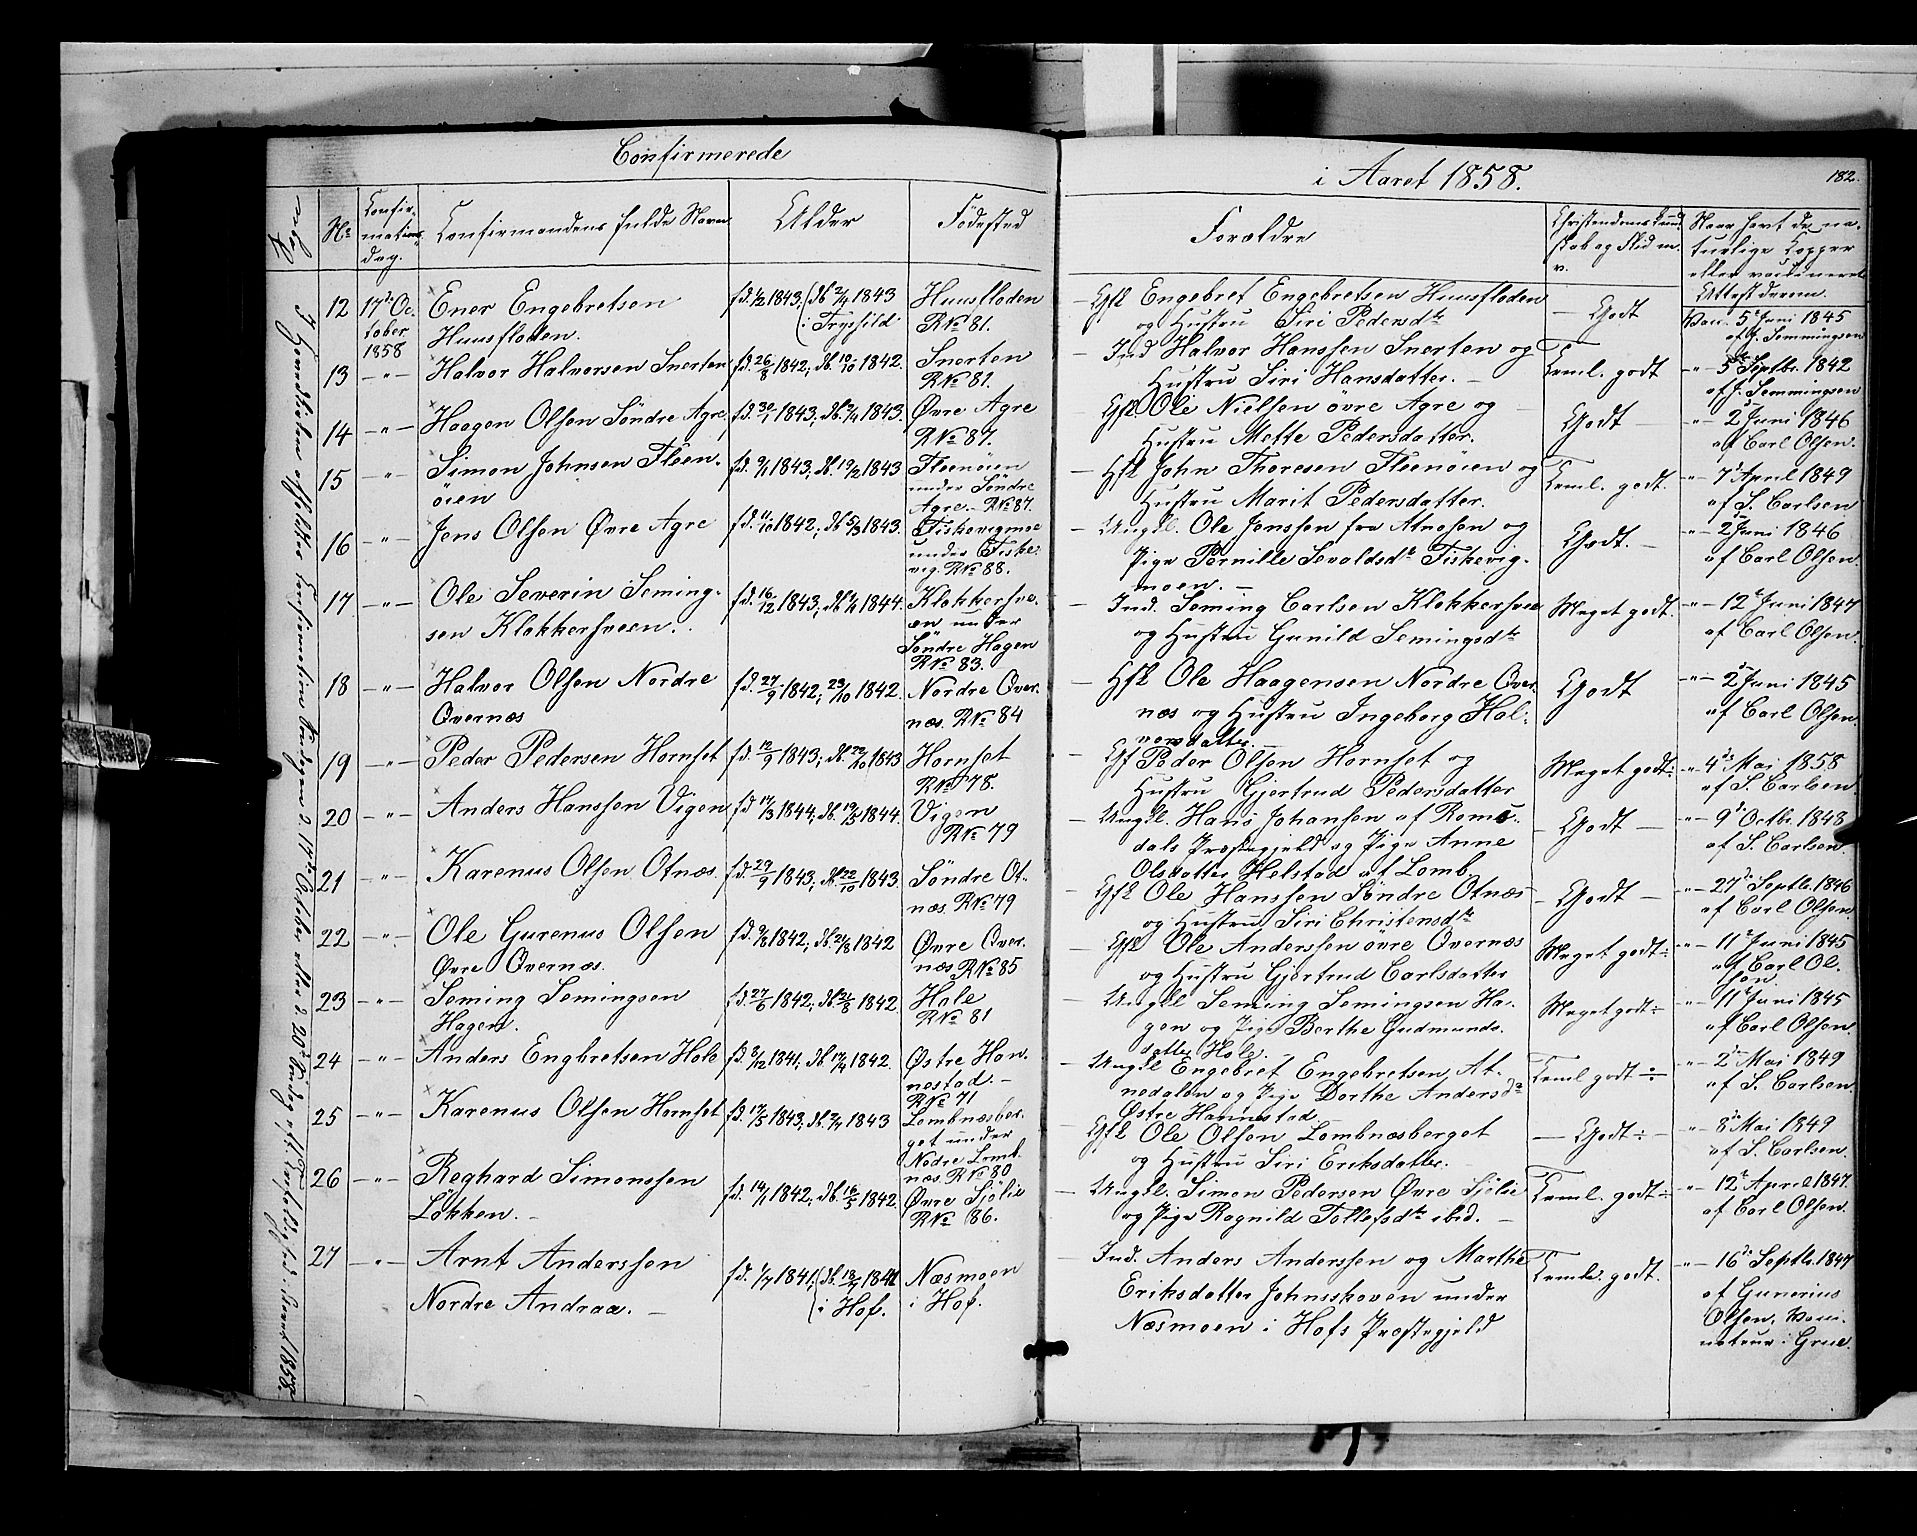 Confirmerede
i Aaret 1858.
182.
No
Confir-
mations-
dag.
Confirmandens fulde Navn
Alder
Födested
Forældre
Christendomskund-
skab og Flid m.
v.
Naar havt de na-
turlige Kopper
eller vaccineret
Attest derom.
12
17de Oc-
tober
1858
Ener Engebretsen
Huusfloden.
fd. 1/2 1843. (db. 2/4 1843
i Trysild
Huusfloden
R No 81.
Gfb Engebret Engebretsen Huusfloden
og Hustru Siri Pedersdtr
Godt
Vacc. 5te Juni 1845
af J. Semmingsen
13 -"-
Halvor Halvorsen Snerten
fd. 26/8 1842; db. 10/10 1842.
Snerten
R No 81.
Ind Halvor Hanssen Snerten og
Hustru Siri Hansdatter.
Teml. godt
-"- 5te Septbr. 1842
af J. Semmingsen
14 -"-
Haagen Olsen Söndre Agre
fd. 30/1 1843; db. 2/4 1843.
Øvre Agre
R No 87.
Gfb Ole Nielsen övre Agre og
Hustru Mette Pedersdatter.
Godt
-"- 2 Juni 1846
af Carl Olsen.
15 -"-
Simon Johnsen Fleen-
öien
fd. 9/1 1843; db. 19/2 1843
Fleenöien
under Söndre
Agre. R No 87.
Hfb John Thoresen Fleenöien og
Hustru Marit Pedersdatter.
Teml. godt.
-"- 7de April 1849
af S. Carlsen
16 -"-
Jens Olsen Øvre Agre
fd. 11/10 1842; db. 5/3 1843.
Fiskevigmoe
under Fiske-
vig. R No 88.
Ungkl. Ole Jenssen fra Atneosen og
Pige Pernille Sevaldsdtr Fiskevig-
moen.
Godt.
-"- 2 Juni 1846
af Carl Olsen.
17 -"-
Ole Severin Seming-
sen Klokkersveen.
fd. 16/12 1843; db. 1/4 1844.
Klokkersve-
en under
Söndre Hagen
R No 83.
Ind. Seming Carlsen Klokkersveen
og Hustru Gunild Semingsdtr
Meget godt.
-"- 12te Juni 1847
af Carl Olsen.
18 -"-
Halvor Olsen Nordre
Overnæs
fd. 27/9 1842; 23/10 1842.
Nordre Over-
næs. R No 84
Hfb Ole Haagensen Nordre Over-
næs og Hustru Ingeborg Hal-
vorsdatter.
Godt
-"- 2 Juni 1845
af Carl Olsen.
19 -"-
Peder Pedersen Hornset
fd. 12/9 1843; db. 22/10 1843
Hornset
R No 78.
Gf Peder Olsen Hornset og
Hustru Gjertrud Pedersdatter
Meget godt÷
-"- 4de Mai 1858
af S. Carlsen
20 -"-
Anders Hanssen Vigen
fd 17/3 1844; db. 19/5 1844.
Vigen
R No 79
Ungkl. Hans Johansen af Roms-
dals Præstegjeld og Pige Anne
Olsdatter Helstad af Lomb.
Godt
-"- 9de Octbr. 1848
af S. Carlsen.
21 -"-
Karenus Olsen Otnæs.
fd. 29/9 1843; db. 22/10 1843.
Söndre Ot-
næs. R No 79
Gfb Ole Hanssen Söndre Otnæs
og Hustru Siri Christensdtr
Godt
-"- 27de Septbr. 1846
af Carl Olsen.
22 -"-
Ole Gurenus Olsen
Øvre Overnæs.
fd. 9/8 1842; db. 21/8 1842
Øvre Over-
næs R No 85
Gfb Ole Anderssen övre Overnæs
og Hustru Gjertrud Carlsdatter
Meget godt÷
-"- 11te Juni 1845
af Carl Ol-
sen.
23 -"-
Seming Semingsen
Hagen.
fd. 27/6 1842; db. 21/8 1842.
Hole
R No 81
Ungkl Seming Semingsen Ha-
gen og Pige Berthe Gudmunds-
datter Hole.
Meget godt÷
-"- 11te Juni 1845
af Carl Olsen.
24 -"-
Anders Engbretsen Hole
fd. 8/12 1841, db. 17/4 1842.
Østre Han-
nestad.
R No 71
Ungkl Engebret Engebretsen At-
nedalen og Pige Dorthe Andersdr
Østre Hannestad
Teml godt ÷
-"- 2de Mai 1849
af S. Carlsen
25 -"-
Karenus Olsen Hornset
fd. 17/5 1843; db. 2/7 1843
Lombnæsber-
get under
Nedre Lomb-
næs. R No 80
Gfb Ole Olsen Lombnæsberget
og Hustru Siri Eriksdatter.
Godt÷
-"- 8de Mai 1849
af S. Carlsen.
26 -"-
Reghard Simonssen
Løkken.
fd. 14/1 1842; db. 16/5 1842.
Øvre Sjölie
R No 86.
Ungkl. Simon Pedersen Øvre Sjölie
og Pige Ragnild Tollefsdtr ibid.
Teml. godt÷
-"- 12te April 1847
af Carl Olsen.
27 -"-
Arnt Anderssen
Nordre Andraa.
fd. 1/7 1841; (db. 18/7 1841
i Hof.
Næsmoen
i Hof.
Ind. Anders Anderssen og Marthe
Eriksdatter Johnsskoven under
Næsmoen i Hofs Præstegjeld
Teml. godt.
-"- 16de Septbr. 1847
af Gunerius
Olsen, Vacci-
nateur i Grue.